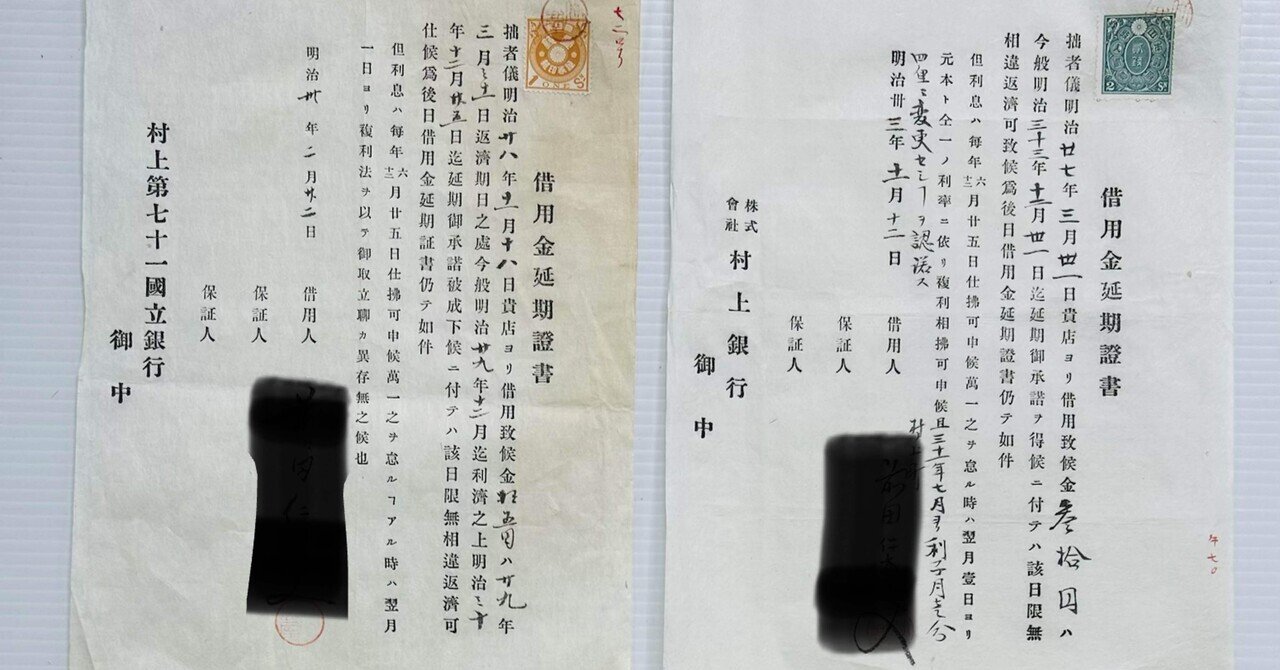 借用金延期證書
拙者儀明治廿七年三月卅一日貴店ヨリ借用致候金叁拾円ハ
今般明治三十三年十二月卅一日迄延期御承諾ヲ得候ニ付テハ該日限無
相違返濟可致候爲後日借用金延期證書仍テ如件
但利息ハ毎年六十二月廿五日仕拂可申候萬一之ヲ怠ル時ハ翌月壹日ヨリ
元本ト仝一ノ利率ニ依リ複利相拂可申候且三十一年七月ヨリ利子月壱分
四厘ニ変更セシヿヲ認諾ス
明治卅三年十一月十二日
借用人
保証人
保証人
株式會社村上銀行
御中
2 Sn
借用金延期證書
拙者儀明治廿八年十一月十八日貴店ヨリ借用致候金五円ハ廿九年
三月三十一日返濟期日之處今般明治廿九年十二月迄利濟之上明治三十
年十二月廿五日迄延期御承諾被成下候ニ付テハ該日限無相違返濟可
仕候爲後日借用金延期証書仍テ如件
但利息ハ毎年六十二月廿五日仕拂可申候萬一之ヲ怠ルヿアル時ハ翌月
一日ヨリ複利法ヲ以テ御取立聊カ異存無之候也
明治卅年二月廿二日
借用人
保証人
保証人
村上第七十一國立銀行
御中
1 ONE Sn